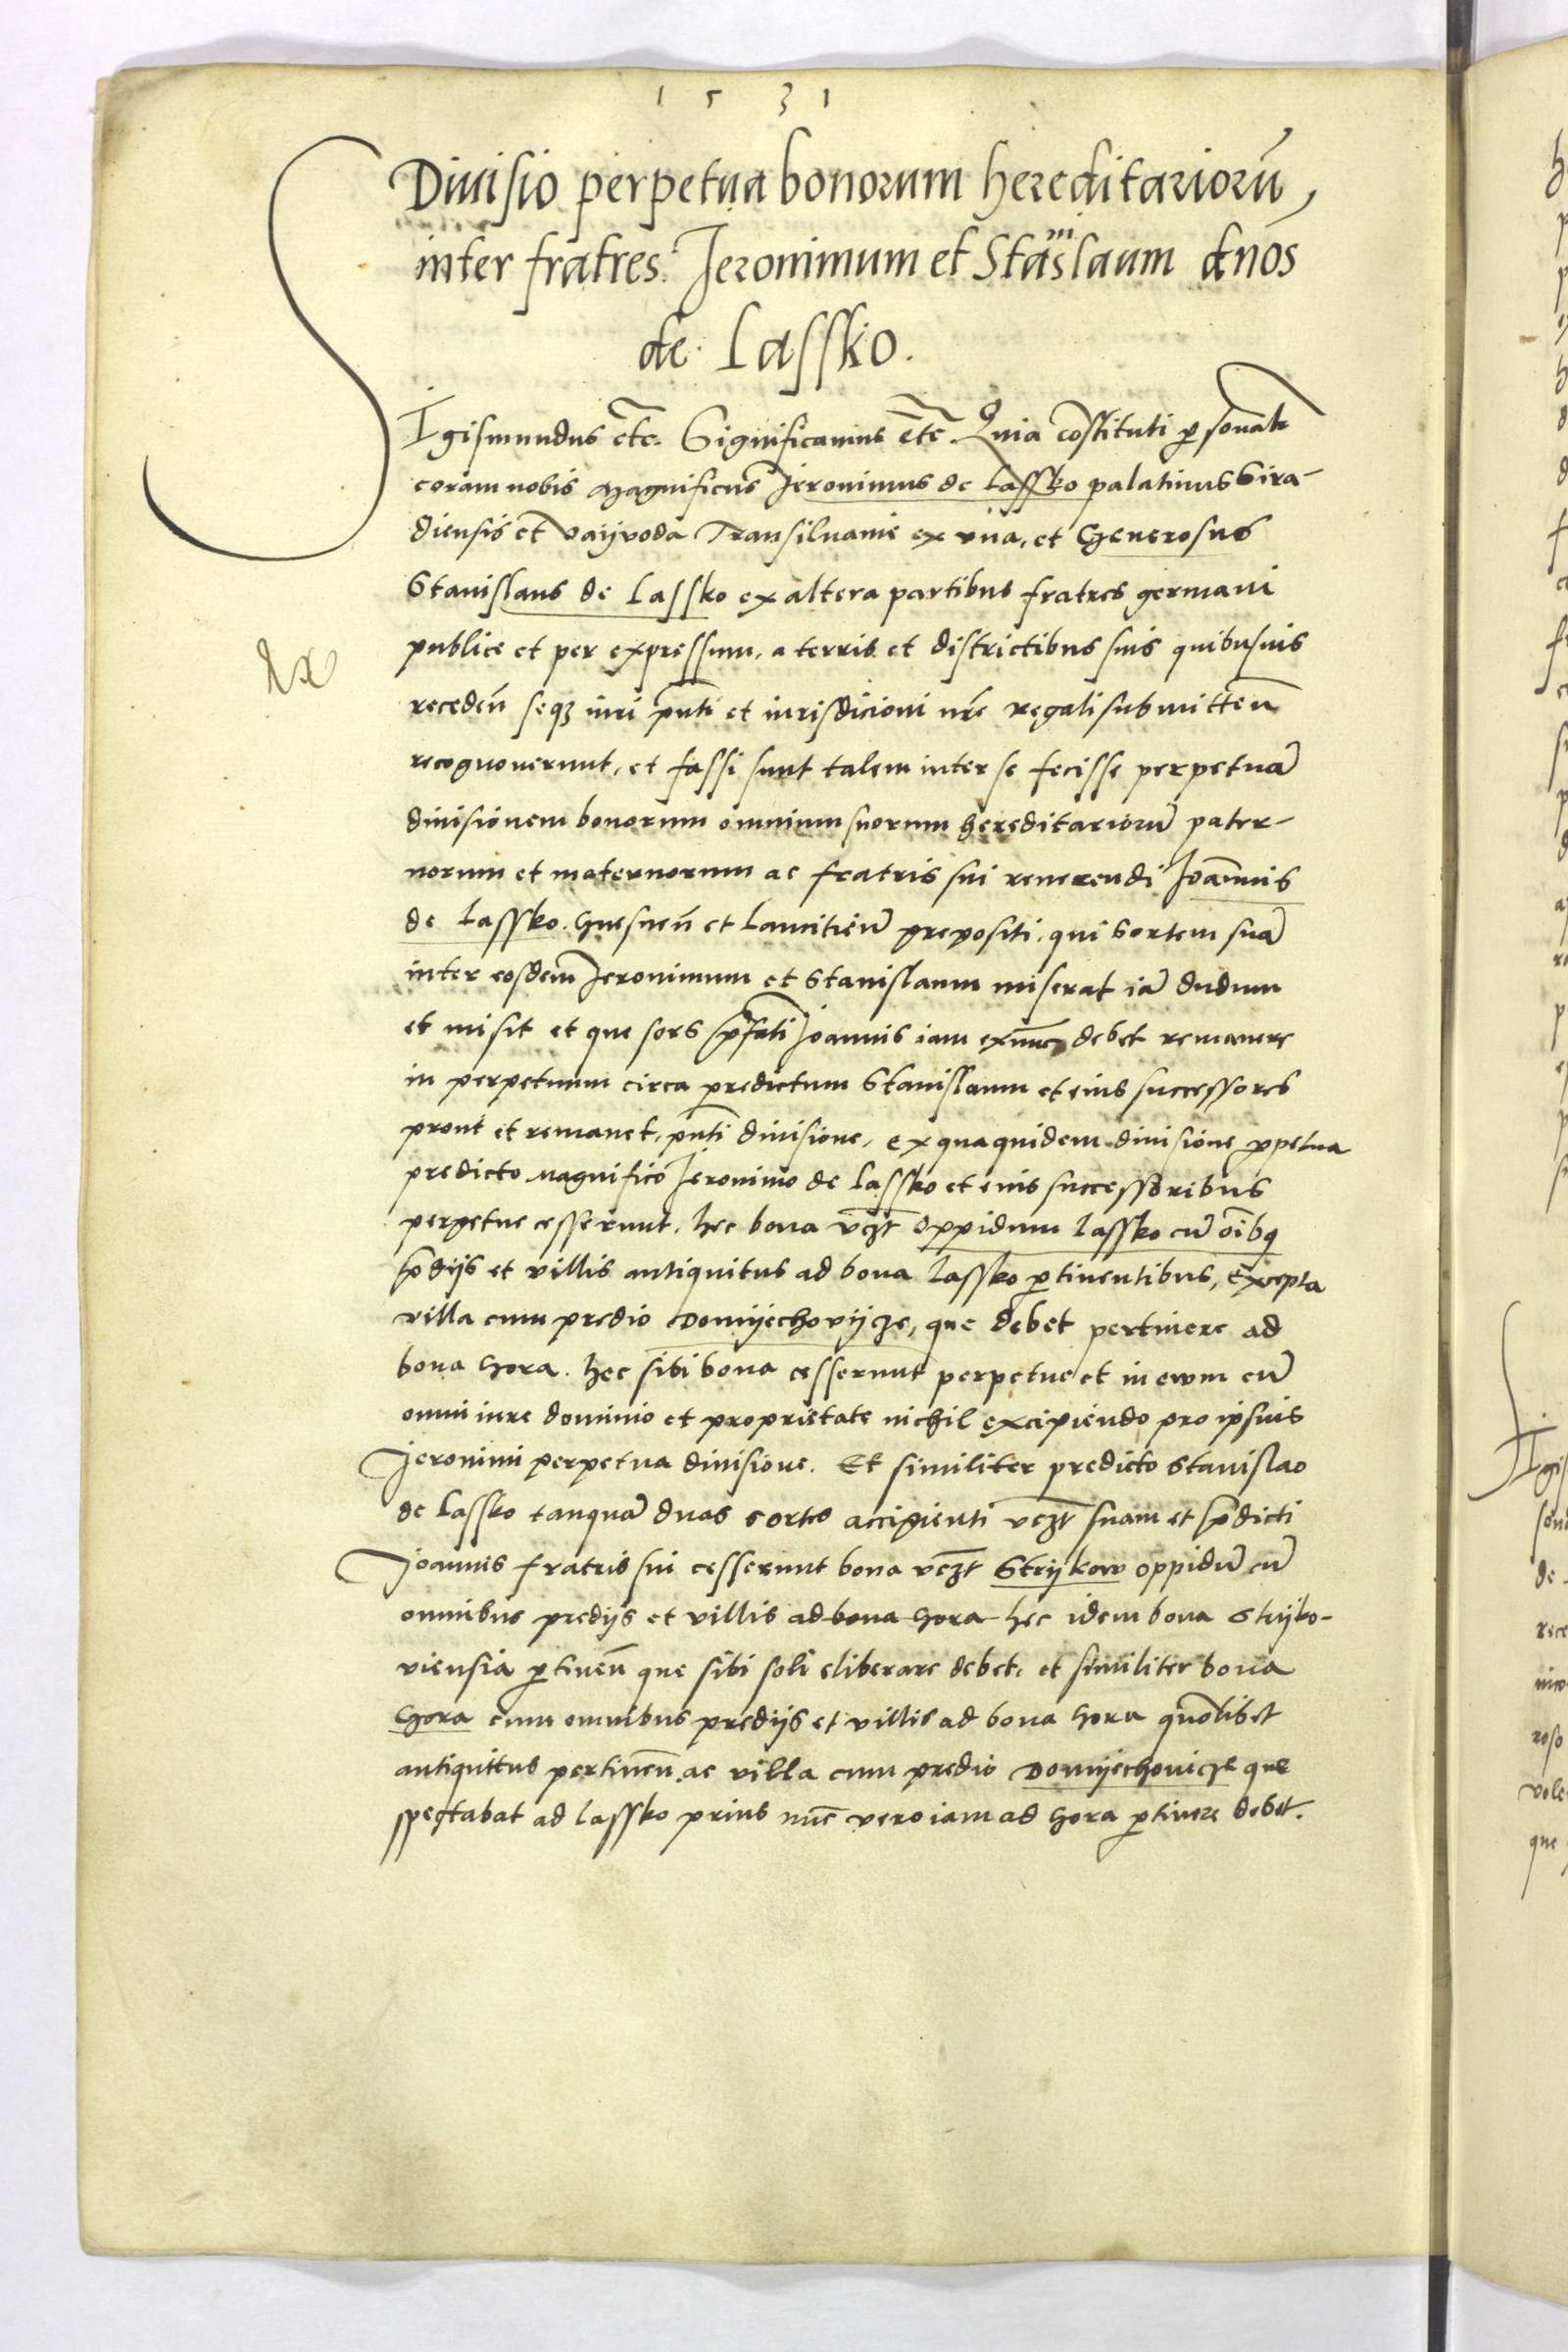 1531
Diuisio perpetua bonorum hereditarioru̅,
inter fratres Jeronimum et Sta̅islaum d̅nos
de Lassko.
SIgismundus etc. Significamus etc. Quia co̅stituti personal̅r
coram nobis Magnificus Jeronimus de Lassko palatinus Sira-
diensis et Vayvoda Transiluanie ex vna, et Generosus
Stanislaus de Lassko ex altera partibus fratres germani
publice et per expressum, a terris et districtibus suis quibusuis
receden̅ seq3 iuri pn̅ti et iurisdicioni nr̅e regali submitten̅
recognouerunt, et fassi sunt talem inter se fecisse perpetua̅
diuisionem bonorum omnium suorum hereditarioru̅ pater-
norum et maternorum ac fratris sui reuerendi Joa̅nnis
de Lassko. Gnesnen̅ et Lancitien̅ prepositi, qui sortem sua̅
inter eosdem Jeronimum et Stanislaum miserat ia̅ dudum
et misit et que sors p̅fati Joannis iam exnunc debet remanere
in perpetuum circa predictum Stanislaum et eius successores
prout et remanet, pn̅ti diuisione, ex qua quidem diuisione p̲petua
predicto magnifico Jeronimo de Lassko et eius successoribus
perpetue cesserunt, hec bona vcz̅t oppidum Lassko cu̅ oi̅bq
p̅dijs et villis antiquitus ad bona Lassko p̲tinentibus, excepta
villa cum predio Domyechovycze, que debet pertinere ad
bona Gora. hec sibi bona cesserunt perpetue et in ewm cu̅
omni iure dominio et proprietate nichil excipiendo pro ipsius
Jeronimi perpetua diuisione. Et similiter predicto Stanislao
de Lassko tanqua̅ duas sortes accipienti vcz̅t suam et p̅dicti
Joannis fratris sui cesserunt bona vcz̅t Strykow oppidu̅ cu̅
omnibus predijs et villis ad bona Gora hec idem bona Stryko-
viensia p̲tinen̅ que sibi soli eliberare debet, et similiter bona
Gora cum omnibus predijs et villis ad bona Gora quo̅libet
antiquitus pertinen̅ ac villa cum predio Domyechouicze que
spectabat ad Lassko prius nu̅c vero iam ad Gora p̲tinere debet.